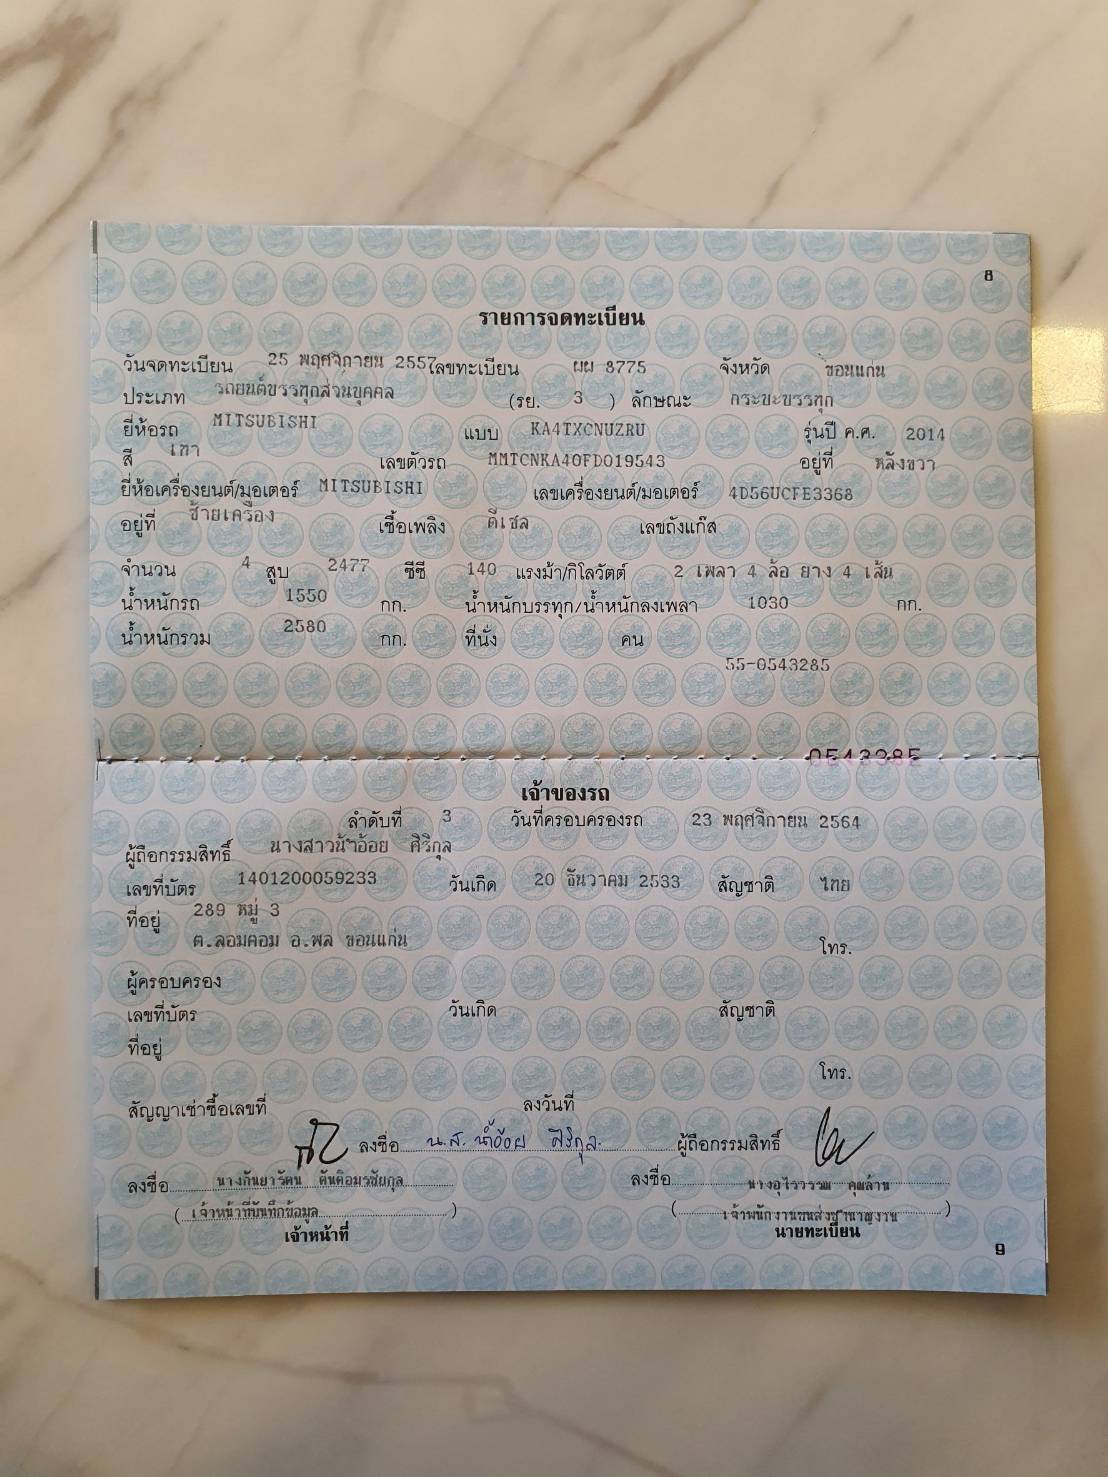 8
รายการจดทะเบียน
วันจดทะเบียน 25 พฤศจิกายน 2557 เลขทะเบียน ผผ 8775 จังหวัด ขอนแก่น
ประเภท รถยนต์บรรทุกส่วนบุคคล (รย. 3 ) ลักษณะ กระบะบรรทุก
ยี่ห้อรถ MITSUBISHI แบบ KA4TXCNUZRU รุ่นปี ค.ศ. 2014
สี เทา เลขตัวรถ MMTCNKA40FD019543 อยู่ที่ หลังขวา
ยี่ห้อเครื่องยนต์/มอเตอร์ MITSUBISHI เลขเครื่องยนต์/มอเตอร์ 4D56UCFE3368
อยู่ที่ ซ้ายเครื่อง เชื้อเพลิง ดีเซล เลขถังแก๊ส
จำนวน 4 สูบ 2477 ซีซี 140 แรงม้า/กิโลวัตต์ 2 เพลา 4 ล้อ ยาง 4 เส้น
น้ำหนักรถ 1550 กก. น้ำหนักบรรทุก/น้ำหนักลงเพลา 1030 กก.
น้ำหนักรวม 2580 กก. ที่นั่ง คน
55-0543285
เจ้าของรถ
ลำดับที่ 3 วันที่ครอบครองรถ 23 พฤศจิกายน 2564
ผู้ถือกรรมสิทธิ์ นางสาวน้ำอ้อย ศิริกุล
เลขที่บัตร 1401200059233 วันเกิด 20 ธันวาคม 2533 สัญชาติ ไทย
ที่อยู่ 289 หมู่ 3
ต.ลอมคอม อ.พล ขอนแก่น โทร.
ผู้ครอบครอง
เลขที่บัตร วันเกิด สัญชาติ
ที่อยู่
โทร.
สัญญาเช่าซื้อเลขที่ ลงวันที่
ลงชื่อ น.ส. น้ำอ้อย ศิริกุล ผู้ถือกรรมสิทธิ์
ลงชื่อ นางกันยารัตน์ ตันติอมรชัยกุล ลงชื่อ นางอุไรวรรณ คุณล้าน
( เจ้าหน้าที่บันทึกข้อมูล ) ( เจ้าพนักงานขนส่งชำนาญงาน )
เจ้าหน้าที่ นายทะเบียน
9